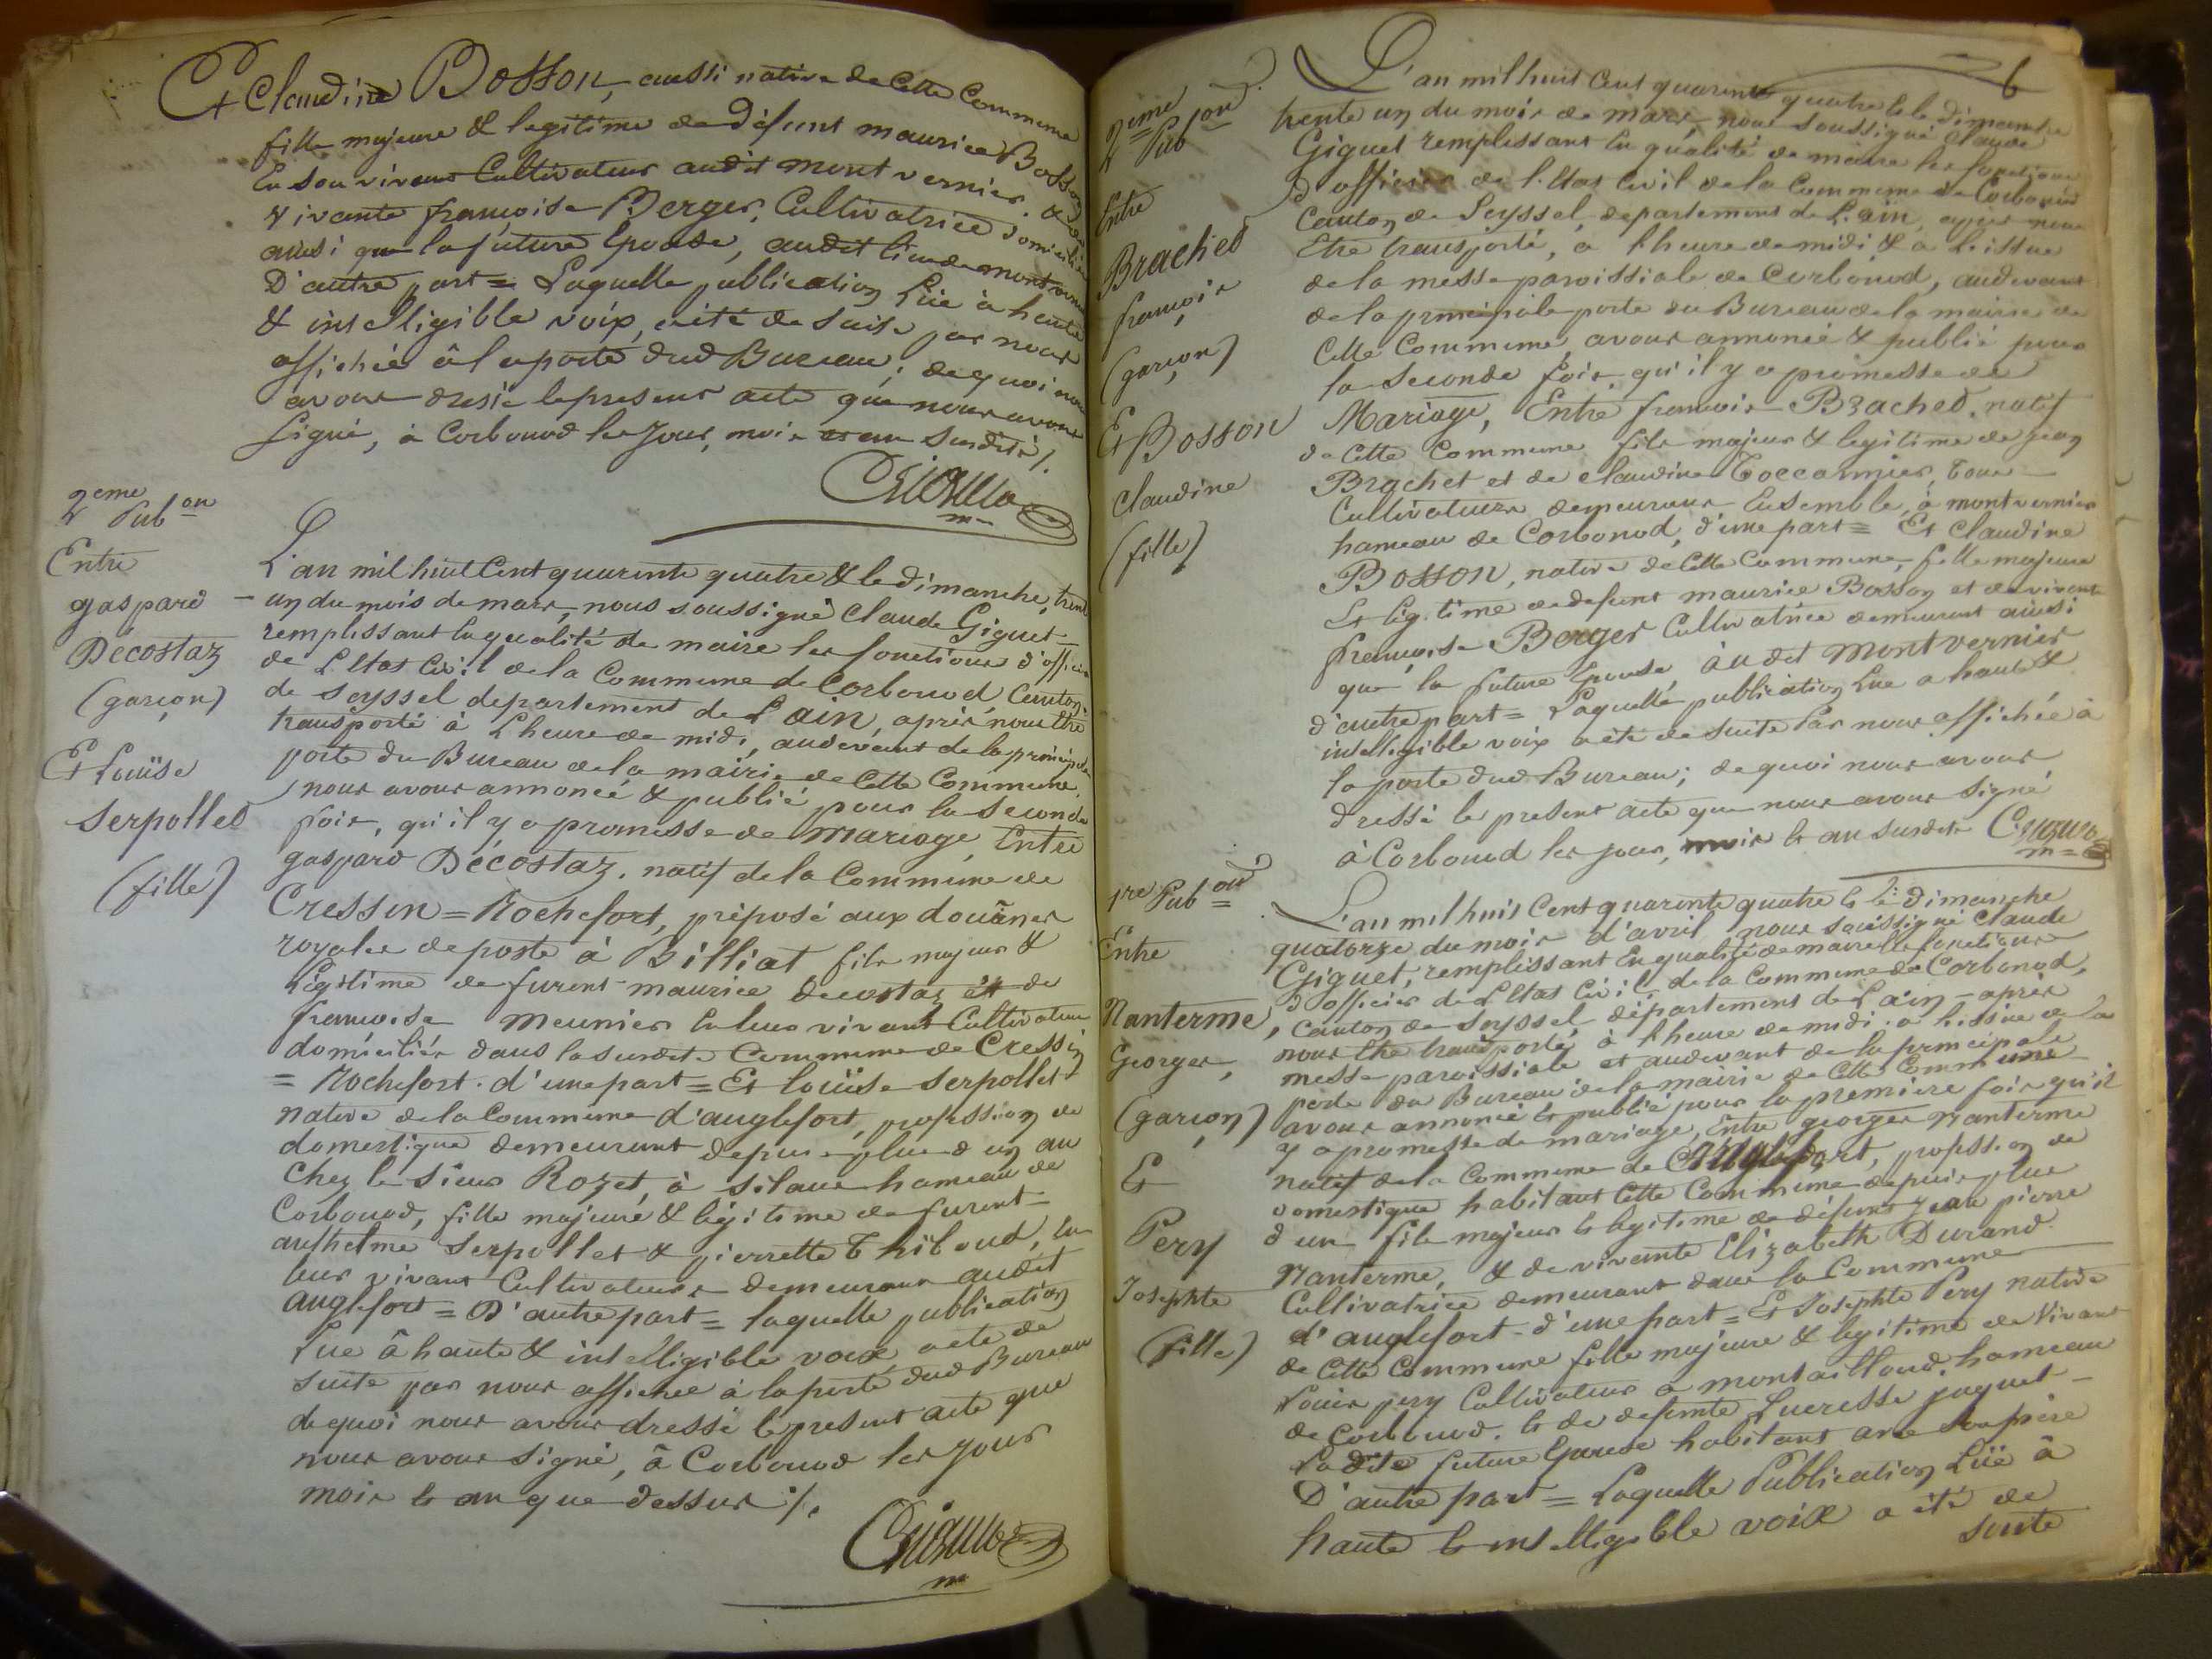 Et Claudine Bosson, aussi native de cette Commune
fille majeure & legitime de défunt maurice Bosson
En son vivant Cultivateur audit mont vernier. & de
vivante françoise Berger, Cultivatrice domiciliée
ainsi que la future Epouse, audit lieu de montvernier
D'autre part = Laquelle publication Lüe à haute
& intelligible voix, a été de suite par nous
affichée à la porte dud Bureau; de quoi nous
avons dressé le present acte que nous avons
signé, à Corbonod les jour, mois et an susdits /.
Giguet
m
2eme Pubon
Entre
gaspard
Décostaz
(garçon)
Et Louïse
Serpollet
(fille)
L'an mil huit Cent quarente quatre & le dimanche, trente
- un du mois de mars, nous soussigné Claude Giguet
remplissant En qualité de maire les fonctions d'officier
de L'Etat Civil de la Commune de Corbonod Canton
de Seyssel departement de L'ain, après nous être
transporté à L'heure de midi, audevant de la principale
porte du Bureau de la mairie de cette Commune,
nous avons annoncé & publié pour la seconde
fois, qu'il y a promesse de mariage, Entre
gaspard Décostaz, natif de la Commune de
Cressin = Rochefort, préposé aux douânes
royales de poste à Billiat fils majeur &
Légitime de furent maurice decostaz et de
françoise meunier En leur vivant Cultivateurs
domiciliés dans la susdite Commune de Cressin
= Rochefort. d'une part = Et louïse Serpollet
native de la Commune d'anglefort, profession de
domestique demeurant depuis plus d'un an
chez le sieur Rozet, à silans hameau de
Corbonod, fille majeure & légitime de furent
anthelme Serpollet & pierrette Thiboud, En
leur vivant Cultivateurs demeurans audit
anglefort = D'autre part = laquelle publication
Lue à haute & intelligible voix, a eté de
suite par nous affichée à la porte dud Bureau
de quoi nous avons dressé le present acte que
nous avons signé, à Corbonod les jour
mois & an que dessus /.
Giguet
m
6
2eme Pubon
Entre
Brachet
françois
(garçon)
Et Bosson
Claudine
(fille)
L'an mil huit Cent quarente quatre & le dimanche
trente un du mois de mars, nous soussigné Claude
Giguet remplissant En qualité de maire les fonctions
d'officier de l'Etat Civil de la Commune de Corbonod
Canton de Seyssel, departement de L'ain, après nous
Etre transporté, a l'heure de midi & à l'issue
de la messe paroissiale de Corbonod, audevant
de la principale porte du Bureau de la mairie de
cette Commune, avons annoncé & publié pour
la seconde fois, qu'il y a promesse de
Mariage, Entre françois Brachet, natif
de cette Commune fils majeur & legitime de jean
Brachet et de Claudine Toccannier, tous
Cultivateurs demeurans Ensemble, à montvernier
hameau de Corbonod, d'une part = Et Claudine
Bosson, native de cette Commune, fille majeure
Et légitime de defunt maurice Bosson et de vivante
françoise Berger Cultivatrice demeurant ainsi
que la future Epouse, audit montvernier
d'autre part = Laquelle publication Lue a haute &
intelligible voix a été de suite Par nous affichée à
la porte dud Bureau; de quoi nous avons
dressé le present acte que nous avons signé
à Corbonod les jour, mois & an susdits Giguet
m
1re Pubon
Entre
Nanterme,
Georges,
(garçon)
Et
Pery
Josephte
(fille)
L'an mil huit Cent quarente quatre & le dimanche
quatorze du mois d'avril nous soussigné Claude
Giguet, remplissant En qualité de maire les fonctions
d'officier de L'Etat Civil, de la Commune de Corbonod,
Canton de Seyssel, département de L'ain - après
nous être transporté, à l'heure de midi. a l'issüe de la
messe paroissiale et audevant de la principale
porte du Bureau de la mairie de cette Commune
avons annoncé & publié pour la premiere fois qu'il
y a promesse de mariage, Entre georges Nanterme
natif de la Commune de Anglefort, profession de
domestique habitant cette Commune depuis plus
d'un fils majeur & legitime de défunt jean pierre
Nanterme, & de vivante Elizabeth Durand.
Cultivatrice demeurant dans la Commune
d'anglefort - d'une part = Et Josephte Pery native
de cette Commune fille majeure & legitime de Vivant
Louis pery Cultivateur a montailloud, hameau
de Corbonod. & de defunte Lucresse jaquet -
Ladite future Epouse habitant avec son père
D'autre part = Laquelle Publication Lüe à
haute & intelligible voix a été de
suite